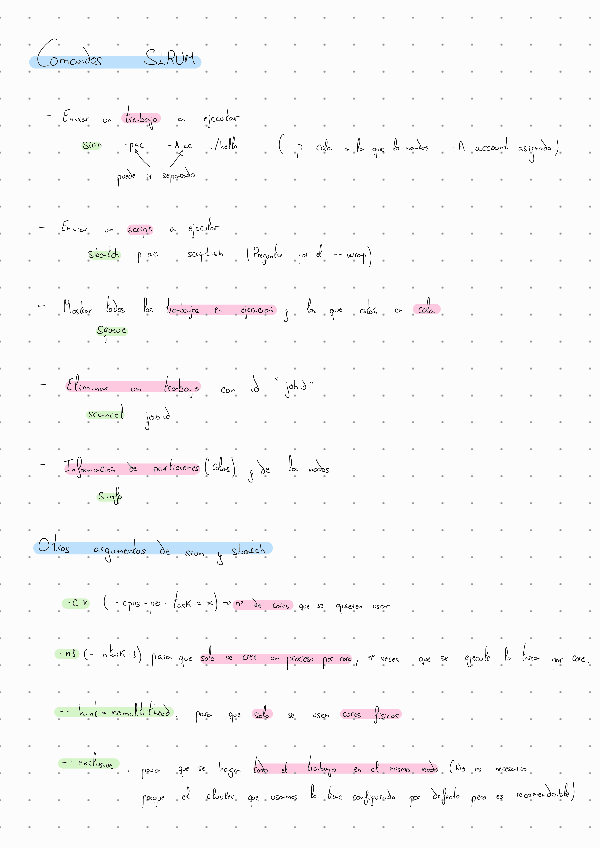 Comandos SLURM
- Enviar un trabajo a ejecutar
srun -p ac -A ac ./hello ( p: cola a la que lo mandas A: account asignado)
puede ir separado
- Enviar un script a ejecutar
sbatch p ac script.sh (Preguntar por el --wrap)
- Mostrar todos los trabajos en ejecución y los que están en cola
squeue
- Eliminar un trabajo con id "jobid"
scancel jobid
- Información de particiones (colas) y de los nodos
sinfo
Otros argumentos de srun y sbatch
-cx (--cpus-per-task = x) → nº de cores que se quieren usar
-n1 (- ntask 1) para que solo se cree un proceso por core, nº veces que se ejecuta la tarea por core.
--hint=nomultithread, para que solo se usen cores físicos
--exclusive, para que se haga todo el trabajo en el mismo nodo (No es necesario
porque el cluster que usamos lo tiene configurado por defecto pero es recomendable)